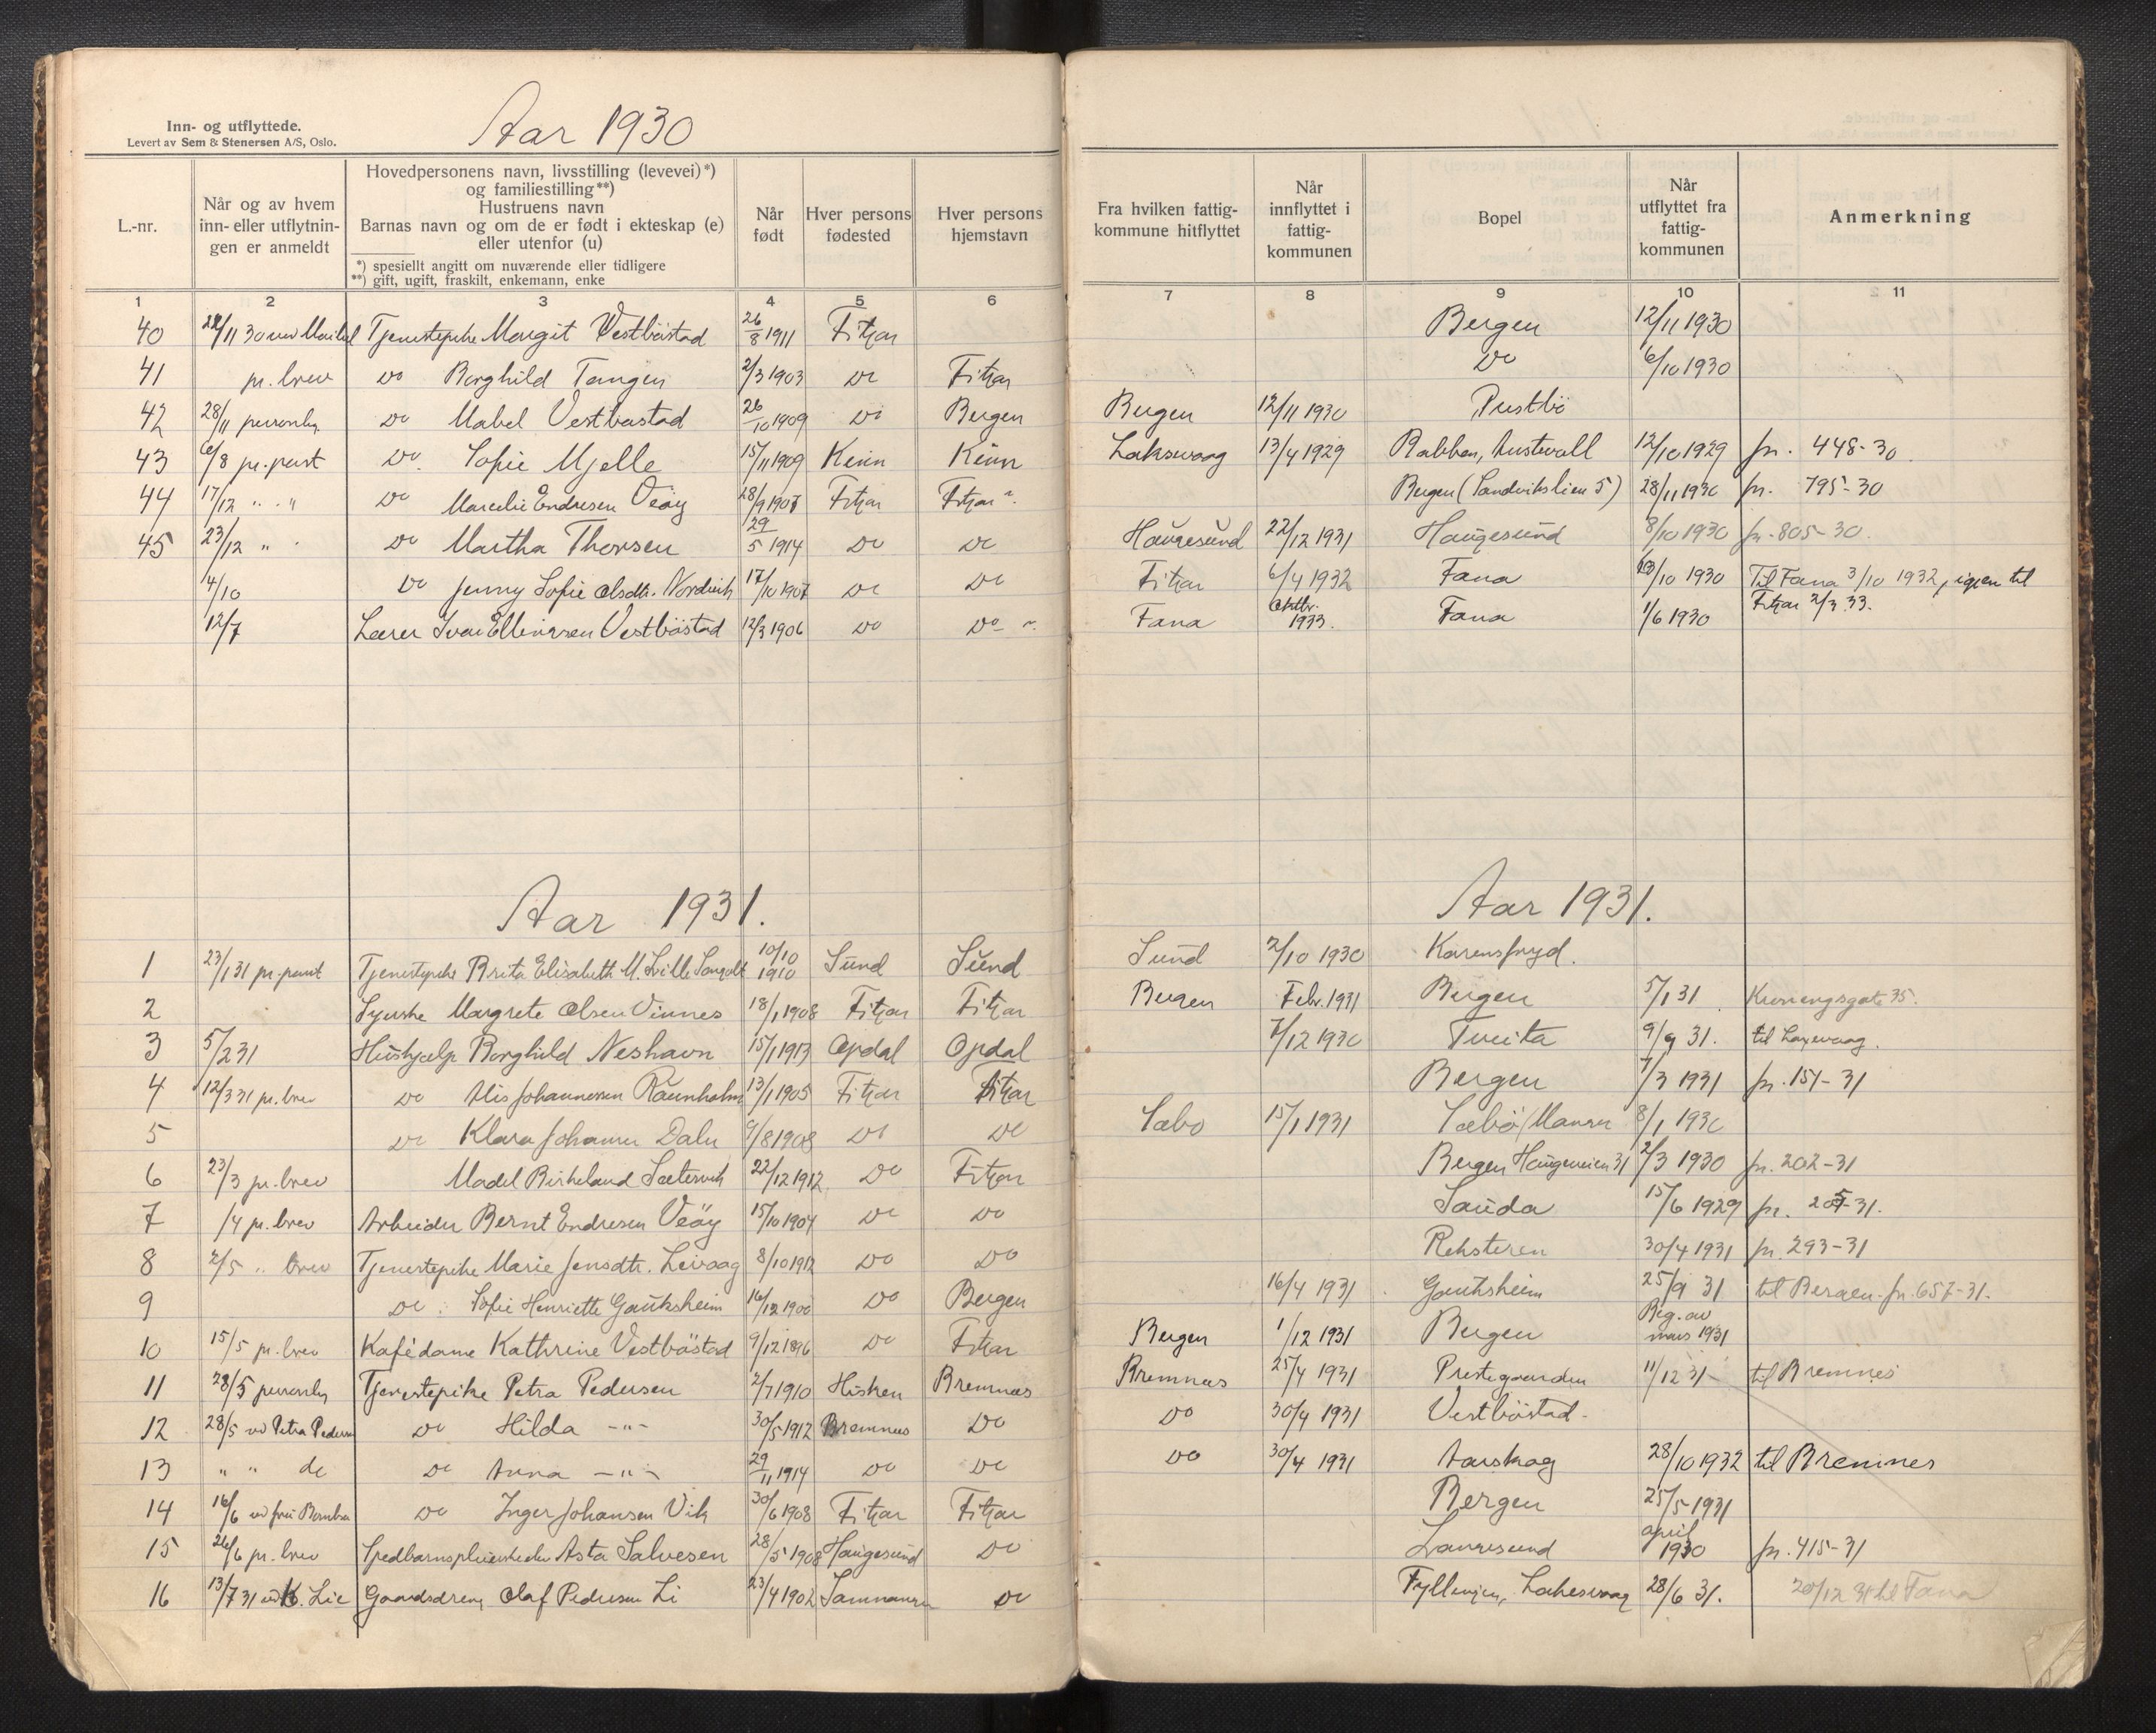 Inn- og utflyttede.
Levert av Sem & Stenersen A/S, Oslo.
Aar 1930
L.-nr.
Når og av hvem inn- eller utflytnin- gen er anmeldt
Hovedpersonens navn, livsstilling (levevei)*) og familiestilling**)
Hustruens navn
Barnas navn og om de er født i ekteskap (e) eller utenfor (u)
*) spesiellt angitt om nuværende eller tidligere
**) gift, ugift, fraskilt, enkemann, enke
Når født
Hver persons fødested
Hver persons hjemstavn
Fra hvilken fattig- kommune hitflyttet
Når innflyttet i fattig- kommunen
Bopel
Når utflyttet fra fattig- kommunen
Anmerkning
1 2 3 4 5 6 7 8 9 10 11
40 Tjenestepike Margit Vestböstad 26/8 1911 Fitjar Bergen 12/11 1930
41 pr. brev Do Borghild Tangen 2/3 1903 Do Fitjar Do 6/10 1930
42 28/11 personlig Do Mabel Vestbøstad 26/10 1909 Do Bergen Bergen 12/11 1930
43 6/8 pr. post Do Sofie Mjelle 15/11 1909 Kinn Kinn Laksevaag 13/4 1929 Rabben, Austevoll 12/10 1929 jn. 448-30
44 17/12 " " Do Endresen Veöy 28/9 1907 Fitjar Fitjar Bergen (Sandvikslien 5) 28/11 1930 jn. 795-30
45 23/12 " Do Martha Thorsen 29/5 1914 Do Do Haugesund 22/12 1931 Haugesund 8/10 1930 jn. 805-30
4/10 Do Jenny Sofie Olsdtr. Nordvik 17/10 1907 Do Do Fitjar 6/4 1932 Fana 13/10 1930 Til Fana 3/10 1932, igjen til Fitjar 2/3 33.
12/7 Lærer Ivar Ellingsen Vestböstad 12/3 1906 Do Do Fana Oktbr. 1933. Fana 1/6 1930
Aar 1931. Aar 1931.
1 23/1 31 pr. post Tjenestepike Brita Elisabeth M. Lille 10/10 1910 Sund Sund Sund 2/10 1930 Karensfryd.
2 Syerske Margrete Olsen Vinnes 18/1 1908 Fitjar Fitjar Bergen Febr. 1931 Bergen 5/1 31 35.
3 5/2 31 Hushjælp Borghild Neshavn 15/1 1913 Opdal Opdal 7/12 1930 Tveita 9/9 31. til Laxevaag.
4 12/3 31 pr. brev Do Johannesen Raunholm 13/1 1905 Fitjar Fitjar Bergen 7/3 1931 jn. 151-31
5 Do Klara Johanne Dale 9/8 1908 Do Do Sæbo 15/1 1931 Sæbö/Manger 8/1 1930
6 23/3 pr. brev Madel Birkeland Sætervik 22/12 1912 Do Fitjar Bergen Haugeveien 31 2/3 1930 jn. 202-31
7 /4 pr. brev Arbeider Bernt Endresen Veöy 15/10 1904 Do Do Sauda 15/6 1929 jn. 205-31.
8 2/5 " brev Tjenestepike Marie Jensdtr. Leivaag 8/10 1912 Do Do Reksteren 30/4 1931 jn. 293-31
9 Do. Sofie Henriette Gauksheim 16/12 1900 Do Bergen 16/4 1931 Gauksheim 25/9 31 til Bergen jn. 657-31.
10 15/5 pr. brev Kafédame Kathrine Vestböstad 9/12 1896 Do Fitjar Bergen 1/12 1931 Bergen Beg. av mars 1931
11 28/5 personlig Tjenestepike Petra Pedersen 2/7 1910 Hisken Bremnes Bremnes 25/4 1931 Prestegaarden 11/12 31 til Bremnes
12 28/5 ved Petra Pedersen Do Hilda -"- 30/5 1912 Bremnes Do Do 30/4 1931 Vestböstad
13 " " do Do Anna -"- 29/11 1914 Do Do Do 30/4 1931 Aarskog 28/10 1932 til Bremnes
14 16/6 ved fru Do Inger Johansen Vik 30/6 1908 Fitjar Fitjar Bergen 25/5 1931
15 26/6 pr. brev Asta Salvesen 28/5 1908 Haugesund Do Langesund april 1930 jn. 415-31
16 13/7 31 ved K. Lie Gaardsdreng Olaf Pedersen Li 23/4 1902 Samnanger Do Fyllingen, Laksevaag 28/6 31. 20/12 31 til Fana